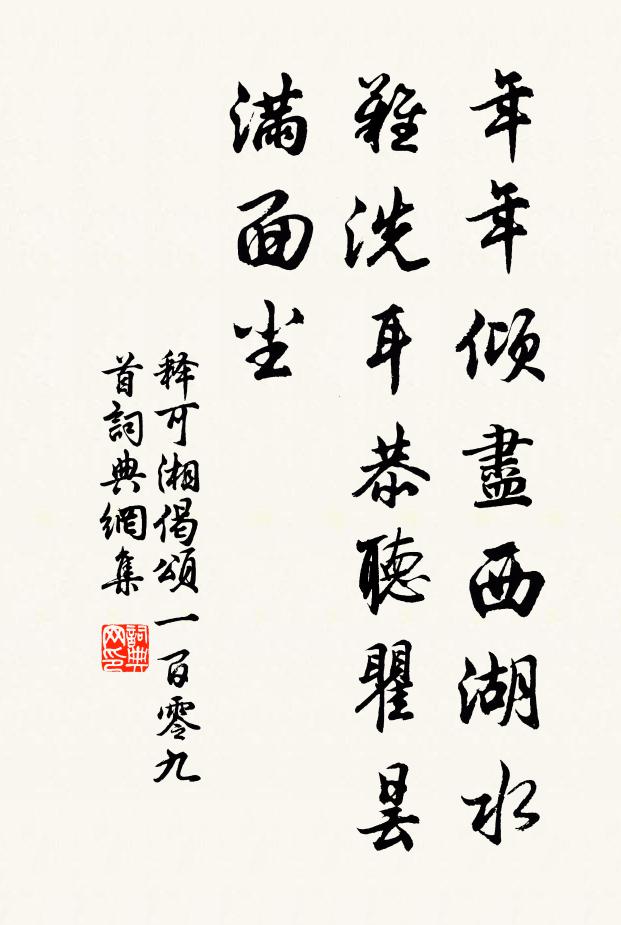 年年傾盡西湖水
難洗耳恭聽瞿曇
滿面尘
释可湘偈頌一百零九
首詞典網集
詞典
网印